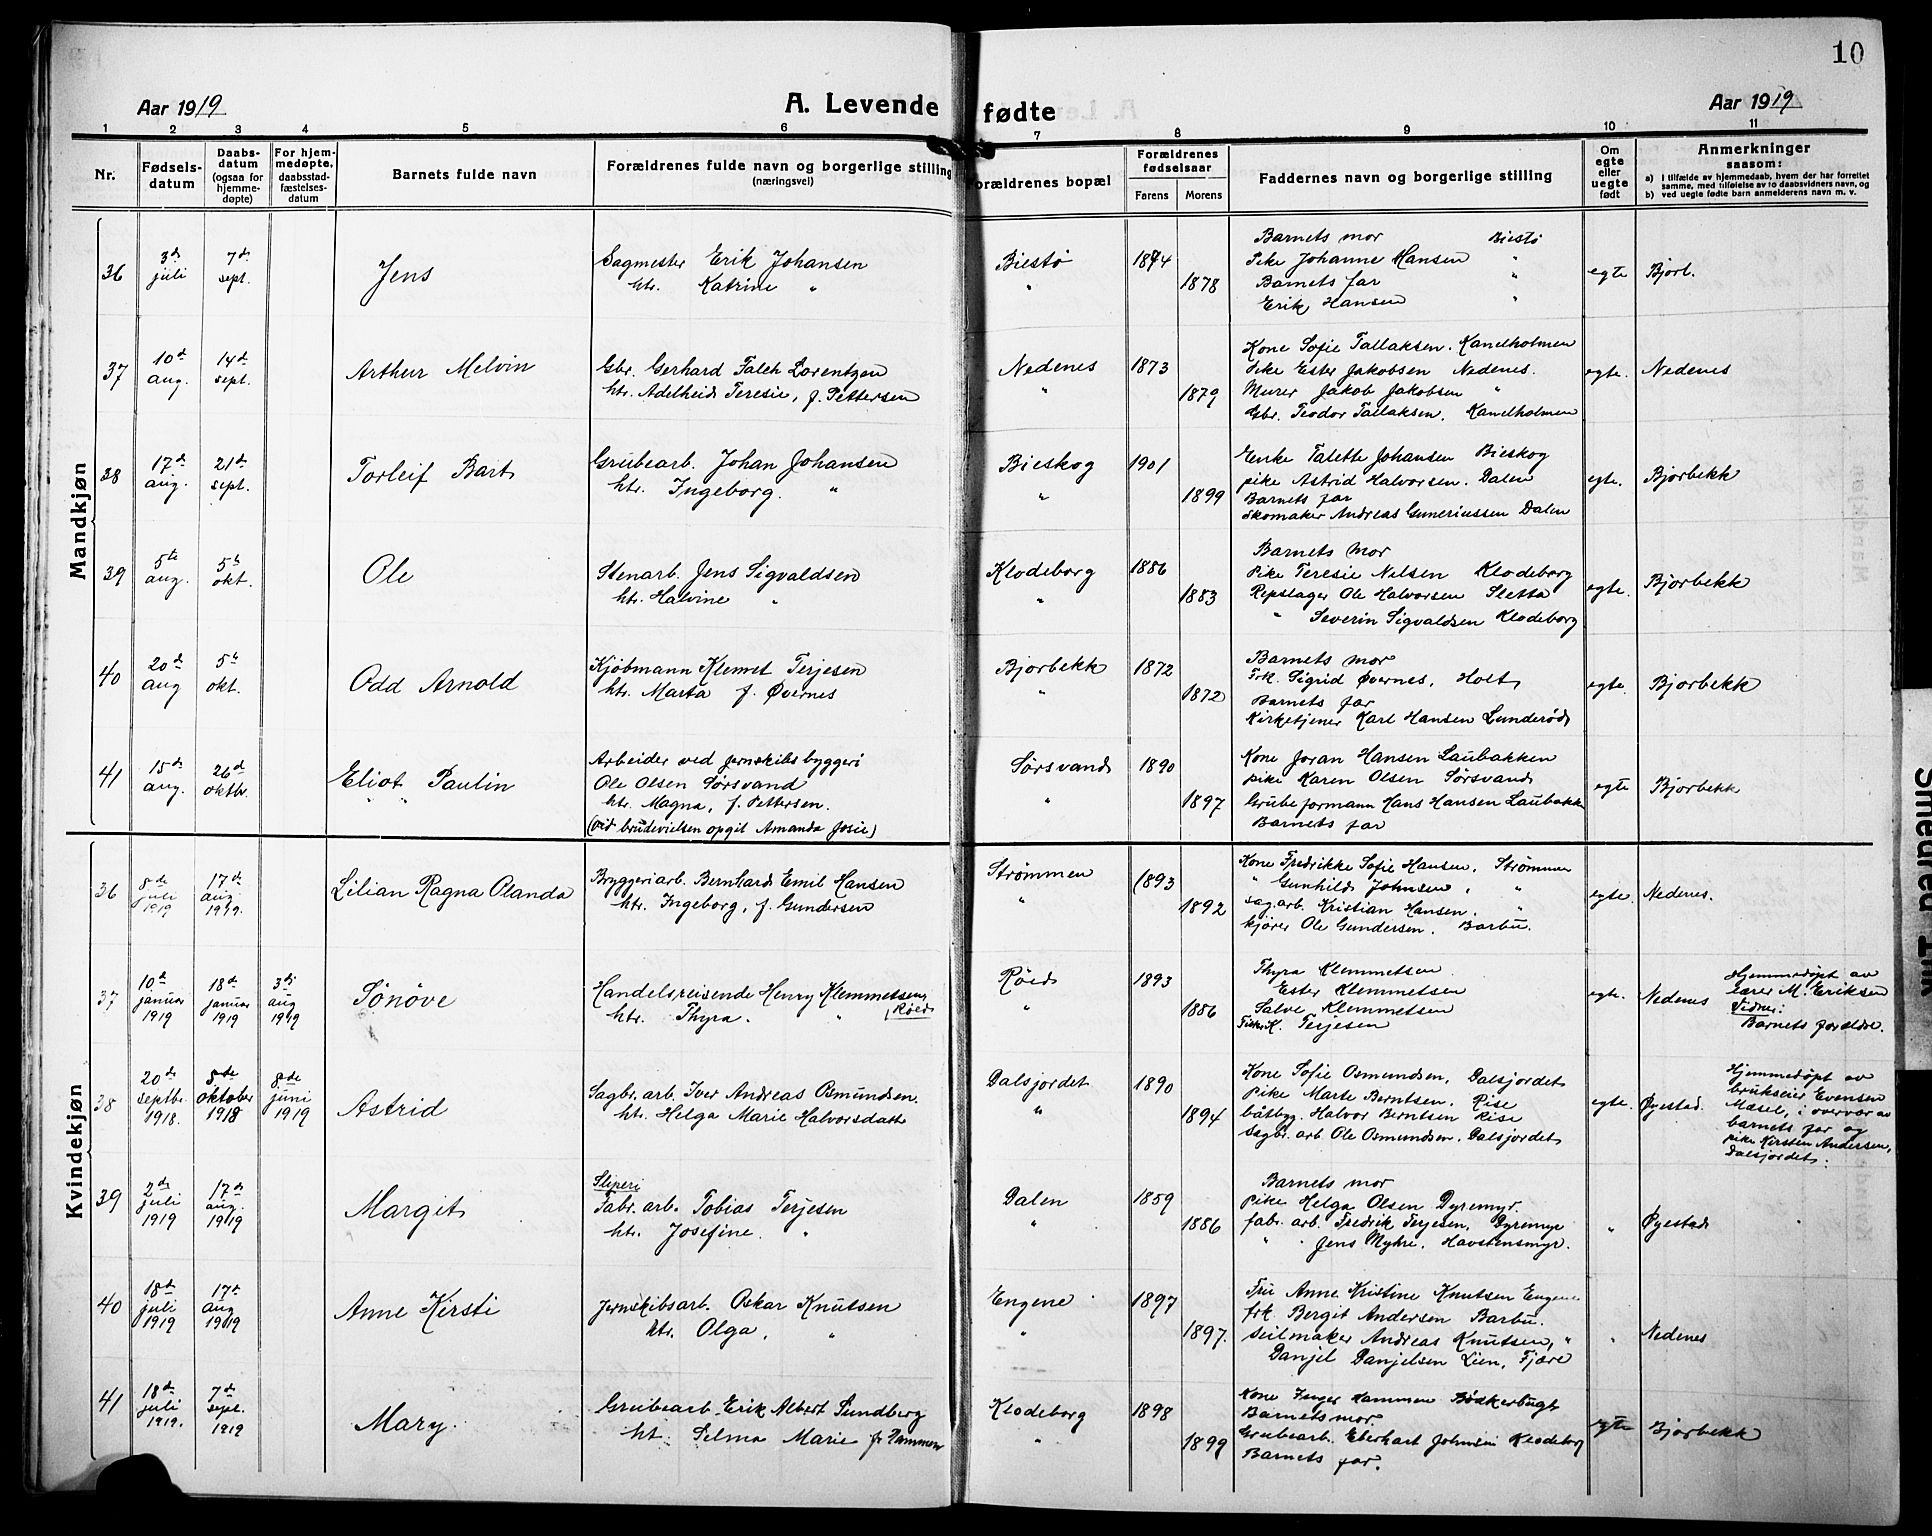 10
Aar 1919
A. Levende fødte
Aar 1919
1 2 3 4 5 6 7 8 9 10 11
Nr.
Fødsels-
datum
Daabs-
datum
(ogsaa for
hjemme-
døpte)
For hjem-
medøpte,
daabsstad-
fæstelses-
datum
Barnets fulde navn
Forældrenes fulde navn og borgerlige stilling
(næringsvei)
Forældrenes bopæl
Forældrenes
fødselsaar
Farens Morens
Faddernes navn og borgerlige stilling
Om
egte
eller
uegte
født
Anmerkninger
saasom:
a) i tilfælde av hjemmedaab, hvem der har forrettet
samme, med tilføielse av to daabsvidners navn, og
b) ved uegte fødte barn anmelderens navn m. v.
Mandkjøn
36
3d
juli
7d
sept.
Jens
Sagmester Erik Johansen
htr. Katrine "
Biestø
"
1874
1878
Barnets mor Biestø
Pike Johanne Hansen "
Barnets far "
Erik Hansen "
egte
Bjorb.
37
10d
aug.
14d
sept.
Arthur Melvin
Gbr. Gerhard Falch Lorentzen
htr. Adelheid Teresie, f. Pettersen
Nedenes
"
1873
1879
Kone Sofie Tallaksen. Kanelholmen
Pike Ester Jakobsen Nedenes.
Murer Jakob Jakobsen "
Gbr. Teodor Tallaksen. Kanelholmen
egte.
Nedenes
38
17d
aug.
21d
sept.
Torleif Bart
Grubearb. Johan Johansen
htr. Ingeborg. "
Bieskog
"
1901
1899
Enke Talette Johansen Bieskog
pike Astrid Halvorsen. Dalen
Barnets far
Skomaker Andreas Guneriussen Dalen
egte.
Bjorbekk
39
5te
aug.
5te
okt.
Ole
Stenarb. Jens Sigvaldsen
htr. Halvine "
Klodeborg
"
1886
1883
Barnets mor
Pike Teresie Nilsen Klodeborg
Repslager Ole Halvorsen Sletta
" Severin Sigvaldsen Klodeborg
egte.
Bjorbekk
40
20d
aug
5te
okt.
Odd Arnold
Kjøbmann Klemet Terjesen
htr. Marta f. Øvernes
Bjorbekk
"
1872
1872
Barnets mor
Frk. Sigrid Øvernes, Holt
Barnets far
Kirketjener Karl Hansen Lunderød
egte.
Bjorbekk
41
15d
aug.
26d
oktbr.
Eliot Paulin
Arbeider ved jernskibsbyggeri
Ole Olsen Sørsvand
htr. Magna, f. Pettersen.
(Ved brudevielsen opgit Amanda Josie)
Sørsvand
"
1890
1897
Kone Joran Hansen Laubakken
pike Karen Olsen Sørsvand
Grubeformann Hans Hansen Laubakk
Barnets far
egte
Bjorbekk
Kvindekjøn
36
8d
juli
1919
17d
aug
1919.
Lilian Ragna Olanda
Bryggeriarb. Bernhard Emil Hansen
htr. Ingeborg, f. Gundersen
Strømmen
"
1893
1892
Kone Fredrikke Sofie Hansen. Strømmen
" Gunhild Johnsen, "
sag.arb. Kristian Hansen. "
kjører Ole Gundersen. Barbu.
egte.
Nedenes.
37
10d
januar
1919
18d
januar
1919
3di
aug
1919
Sønøve
Handelsreisende Henry Klemmetsen,
htr. Thyra. " Røed
Røed
"
1893
1886
Thyra Klemmetsen
Ester Klemmetsen
Salve Klemmetsen
Terjesen
egte.
Nedenes
Hjemmedøpt av
lærer M. Eriksen
Vidner:
Barnets forældre.
38
20d
septbr.
1918.
5te
oktober
1918
8de
juni
1919
Astrid
Sagbr. arb. Iver Andreas Osmundsen.
htr. Helga Marie Halvorsdatt
Dalsjordet
"
1890
1894
Kone Sofie Osmundsen. Dalsjordet
Pike Marte Berntsen. Rise
båtbyg. Halvor Berntsen Rise
Sagbr. arb Ole Osmundsen. Dalsjordet
egte.
Øyestad.
Hjemmedøpt av
brukseier Evensen
Mæsel, i overvær av
barnets far og
pike Kirsten Andersen,
Dalsjordet.
39
2d
juli
1919
17d
aug.
1919
Margit
Sliperi
Fabr. arb. Tobias Terjesen
htr. Josefine. "
Dalen
"
1859
1886
Barnets mor
Pike Helga Olsen Dyremyr.
fabr. arb. Fredrik Terjesen, Dyremyr
" " Jens Myhre. Havstensmyr.
"
Øyestad
40
18d
juli
1919
17d
aug
1919
Anne Kirsti
Jernskibsarb. Oskar Knutsen
htr. Olga. "
Engene
"
1897
1897.
Fru Anne Kristine Knutsen Engene
frk. Bergit Andersen Barbu.
Seilmaker Andreas Knutsen, "
Danjel Danjelsen Lien, Fjære
"
Nedenes
41
18d
juli
1919.
7d
sept.
1919
Mary.
Grubearb Erik Albert Sundberg
ht. Selma Marie f. Hammen
Klodeborg
"
1898
1899
Kone Inger Hammen Bødkerbugt
Barnets mor.
Grubearb. Eberhart Johnsen Klodeborg
Barnets far.
egte
Bjorbekk